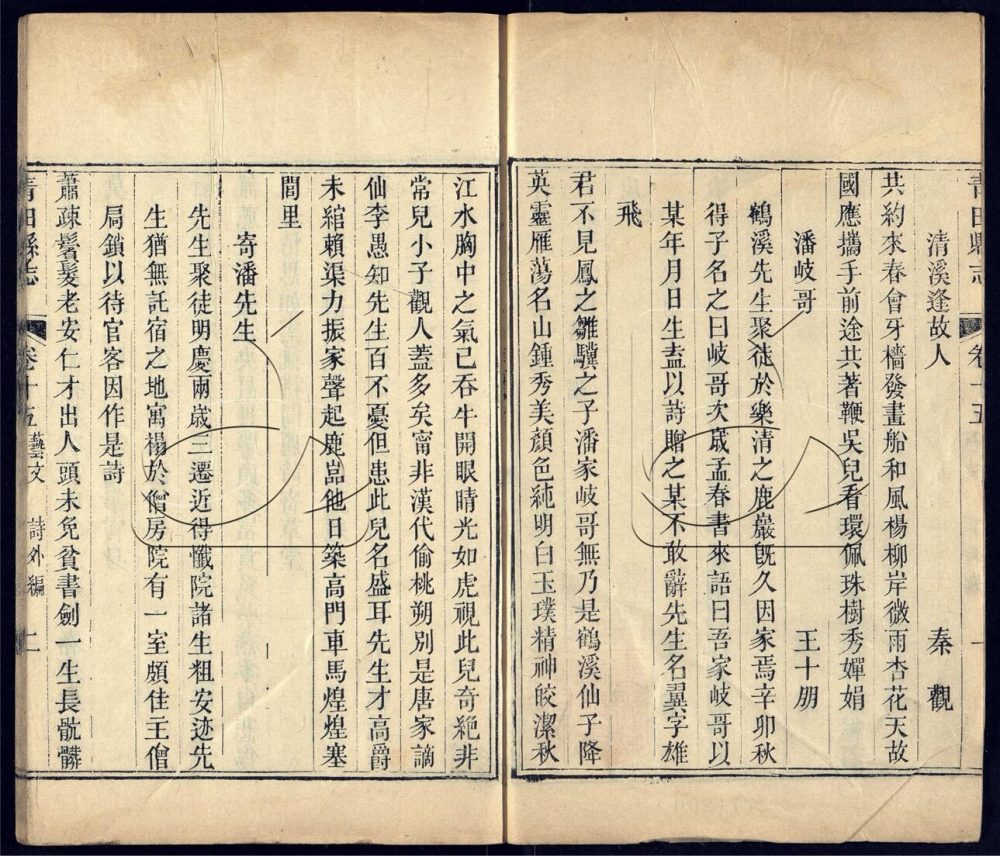 青田縣志 卷十五 一
清溪逢故人 秦觀
共約來春會牙檣發畫船和風楊柳岸微雨杏花天故
國應攜手前途共著鞭吳兒看環佩珠樹秀嬋娟
潘岐哥 王十朋
鶴溪先生聚徒於樂清之鹿巖旣久因家焉辛卯秋
得子名之曰岐哥次歲孟春書來語曰吾家岐哥以
某年月日生盍以詩贈之某不敢辭先生名翼字雄
飛
君不見鳳之雛驥之子潘家岐哥無乃是鶴溪仙子降
英靈雁蕩名山鍾秀美顏色純明白玉璞精神皎潔秋
江水胸中之氣已吞牛開眼睛光如虎視此兒奇絕非
常兒小子觀人蓋多矣甯非漢代偷桃朔別是唐家謫
仙李愚知先生百不憂但患此兒名盛耳先生才高爵
未綰賴渠力振家聲起鹿嵓他日築高門車馬煌煌塞
閭里
寄潘先生
先生聚徒明慶兩歲三遷近得懺院諸生粗安迹先
生猶無託宿之地寓榻於僧房院有一室頗佳主僧
扃鎖以待官客因作是詩
蕭疎鬢髮老安仁才出人頭未免貧書劍一生長骯髒
青田縣志 卷十五 藝文 詩外編 二